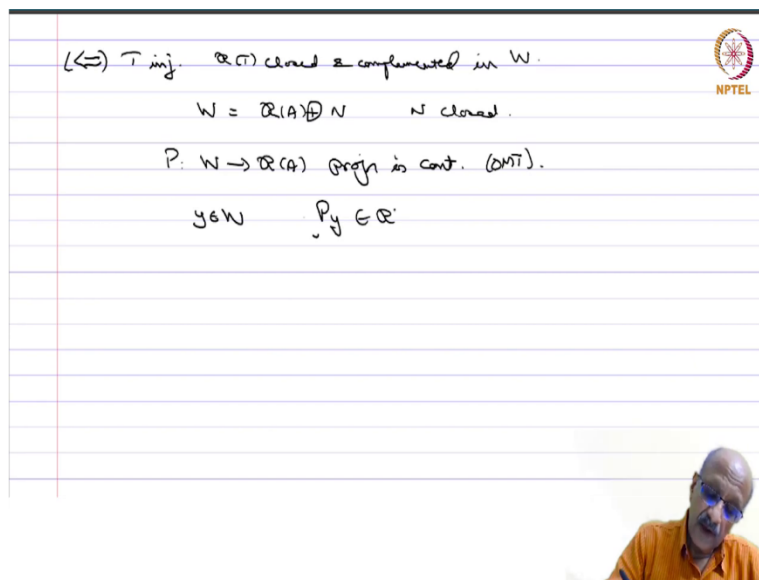 (⇐) T inj. R(T) closed & complemented in W.
W = R(A) ⊕ N N closed.
P: W → R(A) projn is cont. (OMT).
y∈W Py ∈ R
NPTEL